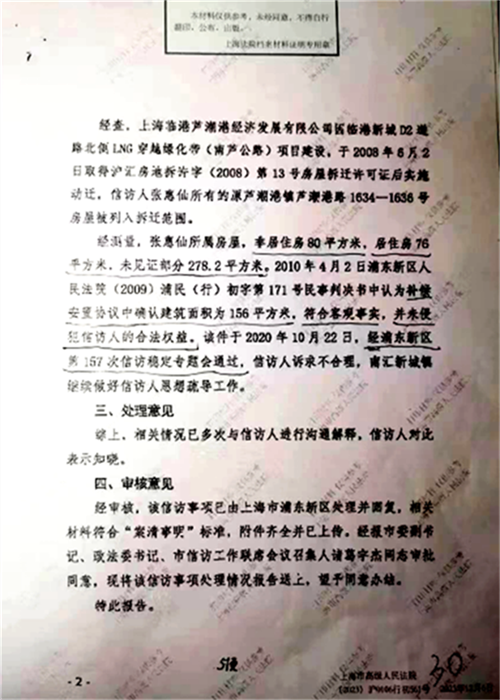 本材料仅供参考，未经同意，不得自行
翻印、公布、出版。
上海法院档案材料证明专用章
经查，上海临港芦潮港经济发展有限公司因临港新城 D2 道
路北侧 LNG 穿越绿化带（南芦公路）项目建设，于 2008 年 6 月 2
日取得沪汇房地拆许字（2008）第 13 号房屋拆迁许可证后实施
动迁，信访人张惠仙所有的原芦潮港镇芦潮港路 1634—1636 号
房屋被列入拆迁范围。
经测量，张惠仙所属房屋，非居住房 80 平方米，居住房 76
平方米，未见证部分 278.2 平方米。2010 年 4 月 2 日浦东新区人
民法院（2009）浦民（行）初字第 171 号民事判决书中认为补偿
安置协议中确认建筑面积为 156 平方米，符合客观事实，并未侵
犯信访人的合法权益。该件于 2020 年 10 月 22 日，经浦东新区
第 157 次信访稳定专题会通过，信访人诉求不合理，南汇新城镇
继续做好信访人思想疏导工作。
三、处理意见
综上，相关情况已多次与信访人进行沟通解释，信访人对此
表示知晓。
四、审核意见
经审核，该信访事项已由上海市浦东新区处理并回复，相关
材料符合“案清事明”标准，附件齐全并已上传。经报市委副书
记、政法委书记、市信访工作联席会议召集人诸葛宇杰同志审批
同意，现将该信访事项处理情况报告送上，望予同意办结。
特此报告。
- 2 -
30
上海市高级人民法院